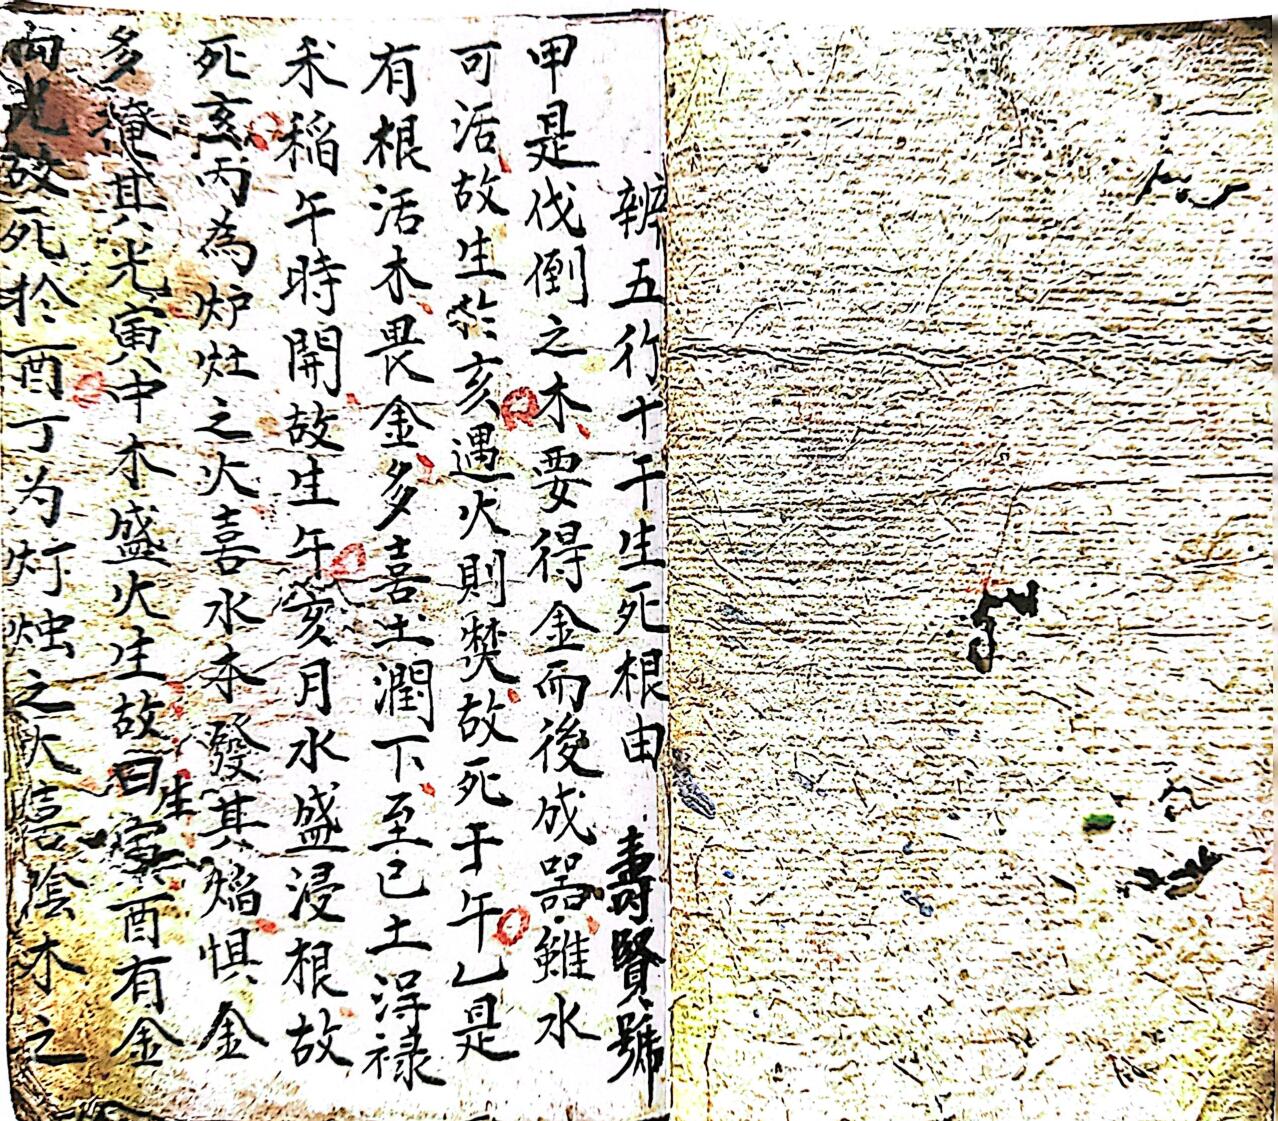 辨五行十干生死根由 壽賢號
甲是伐倒之木要得金而後成器雖水
可活故生於亥遇火則焚故死于午乙是
有根活木畏金多喜土潤下至己土得祿
禾稻午時開故生午亥月水盛浸根故
死亥丙為炉灶之火喜水木發其焰惧金
多掩其光寅中木盛火生故曰生寅酉有金
而光故死於酉丁为灯烛之火喜陰木之